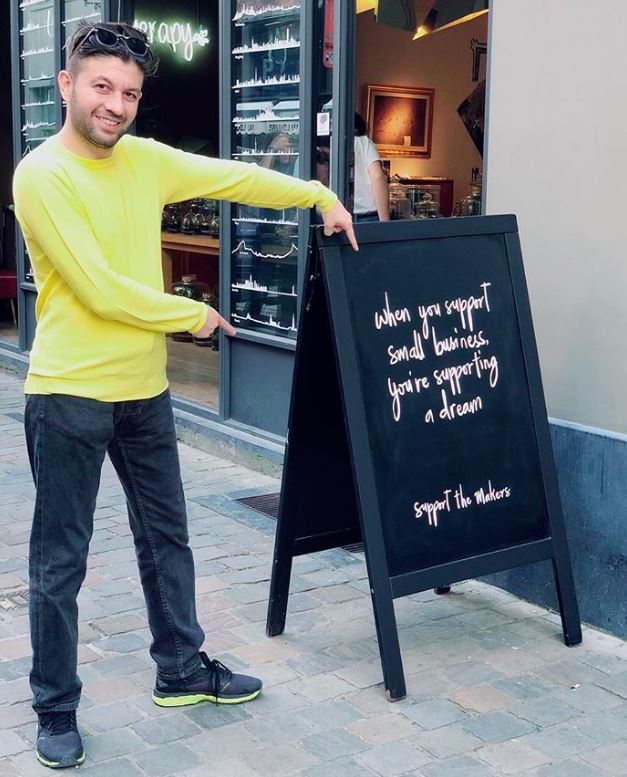 erapy
when you support
small business,
you're supporting
a dream
support the makers